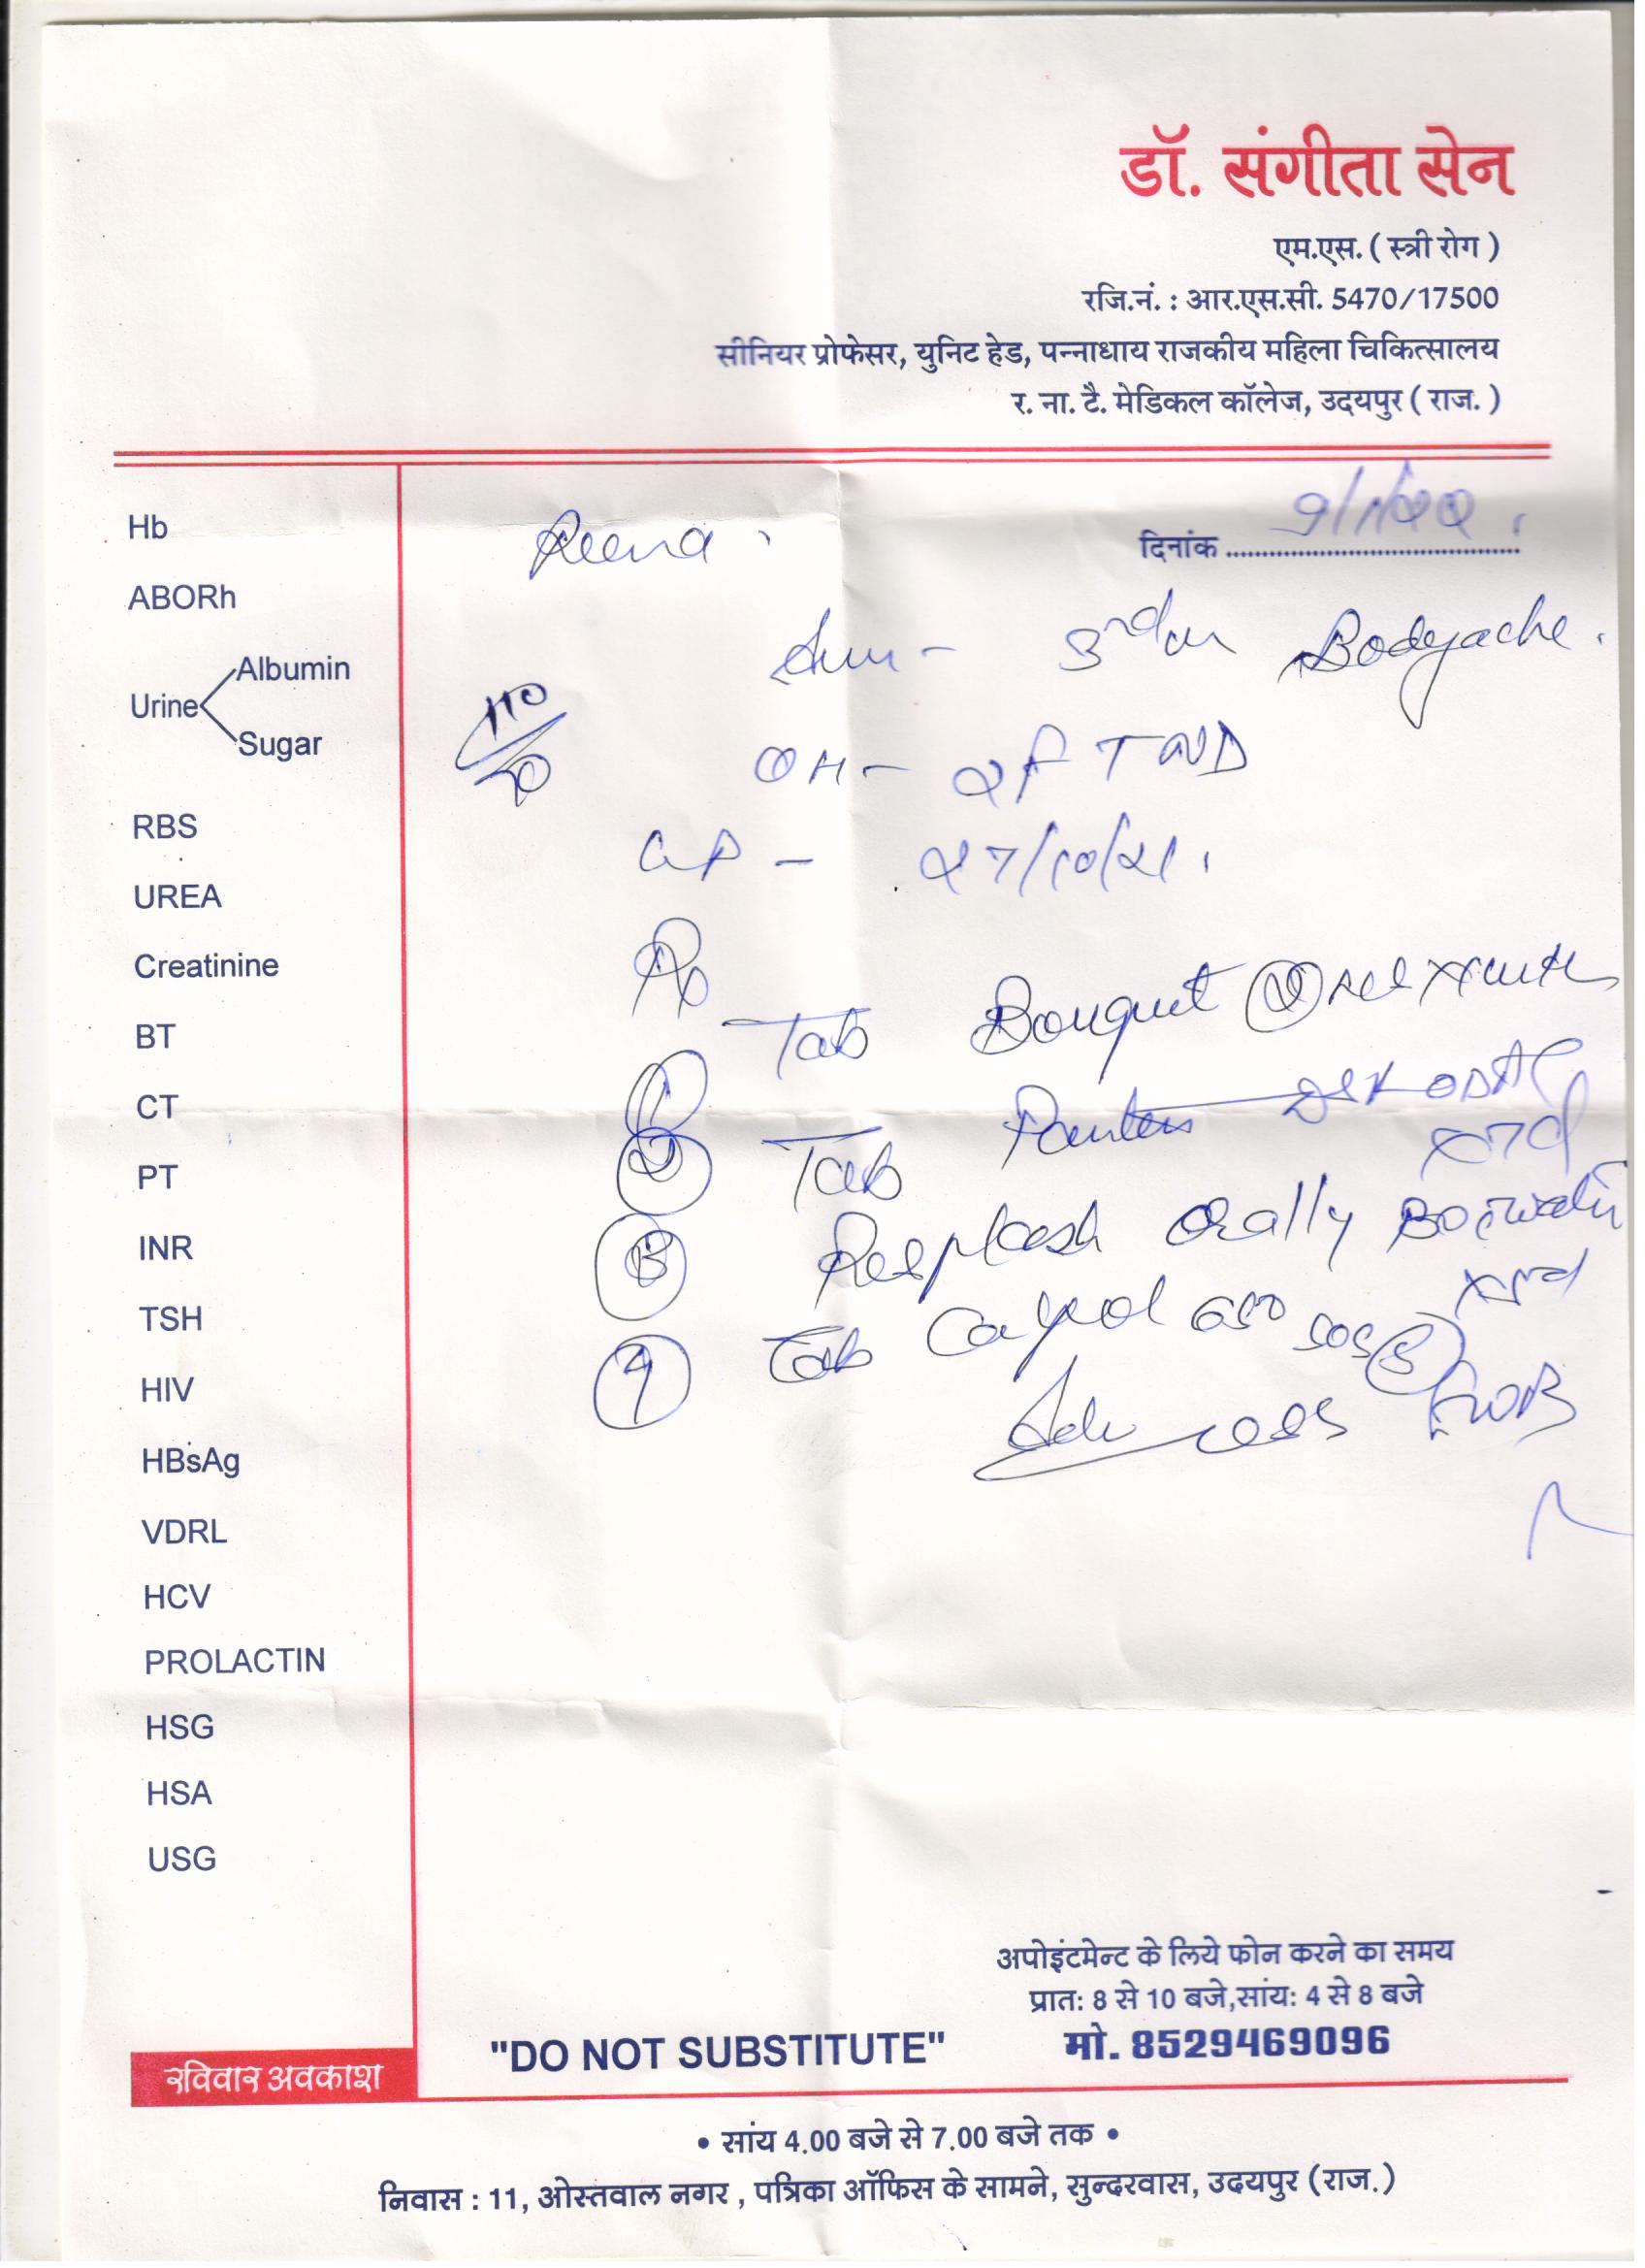 डॉ. संगीता सेन
एम.एस. ( स्त्री रोग )
रजि.नं. : आर.एस.सी. 5470/17500
सीनियर प्रोफेसर, युनिट हेड, पन्नाधाय राजकीय महिला चिकित्सालय
र. ना. टै. मेडिकल कॉलेज, उदयपुर ( राज. )
Reena
दिनांक 9/1/22
Bodyache
110/70
OH - 2FTND
LMP - 27/10/21
Rx
1 Tab Bouquet
2 Tab
x 7d
3 orally
x 5d
4 Tab Calpol 650 SOS
Adv
Hb
ABORh
Urine Albumin
Sugar
RBS
UREA
Creatinine
BT
CT
PT
INR
TSH
HIV
HBsAg
VDRL
HCV
PROLACTIN
HSG
HSA
USG
अपोइंटमेन्ट के लिये फोन करने का समय
प्रात: 8 से 10 बजे,सांय: 4 से 8 बजे
"DO NOT SUBSTITUTE" मो. 8529469096
रविवार अवकाश
• सांय 4.00 बजे से 7.00 बजे तक •
निवास : 11, ओस्तवाल नगर , पत्रिका ऑफिस के सामने, सुन्दरवास, उदयपुर (राज.)